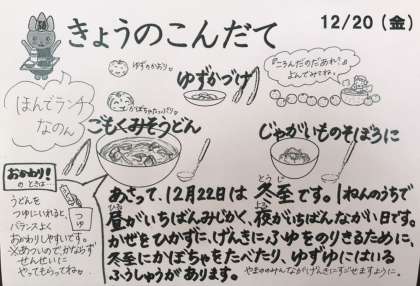 きょうのこんだて
12/20(金)
ほんでランチ
なのん
ゆずのかおり♡
ゆずかづけ
かぼちゃたっぷり♡
ごもくみそうどん
よんでみてね。
じゃがいものそぼろに
おかわり!
のときは…
うどんを
つゆにいれると、
バランスよく
おかわりしやすいです。
※あついので、かならず
せんせいに
やってもらってね。
つゆ
あさって、12月22日は 冬至です。1ねんのうちで
とうじ
昼がいちばんみじかく、夜がいちばんながい日です。
かぜをひかずに、げんきにふゆをのりきるために、
冬至にかぼちゃをたべたり、ゆずゆにはいる
ふうしゅうがあります。